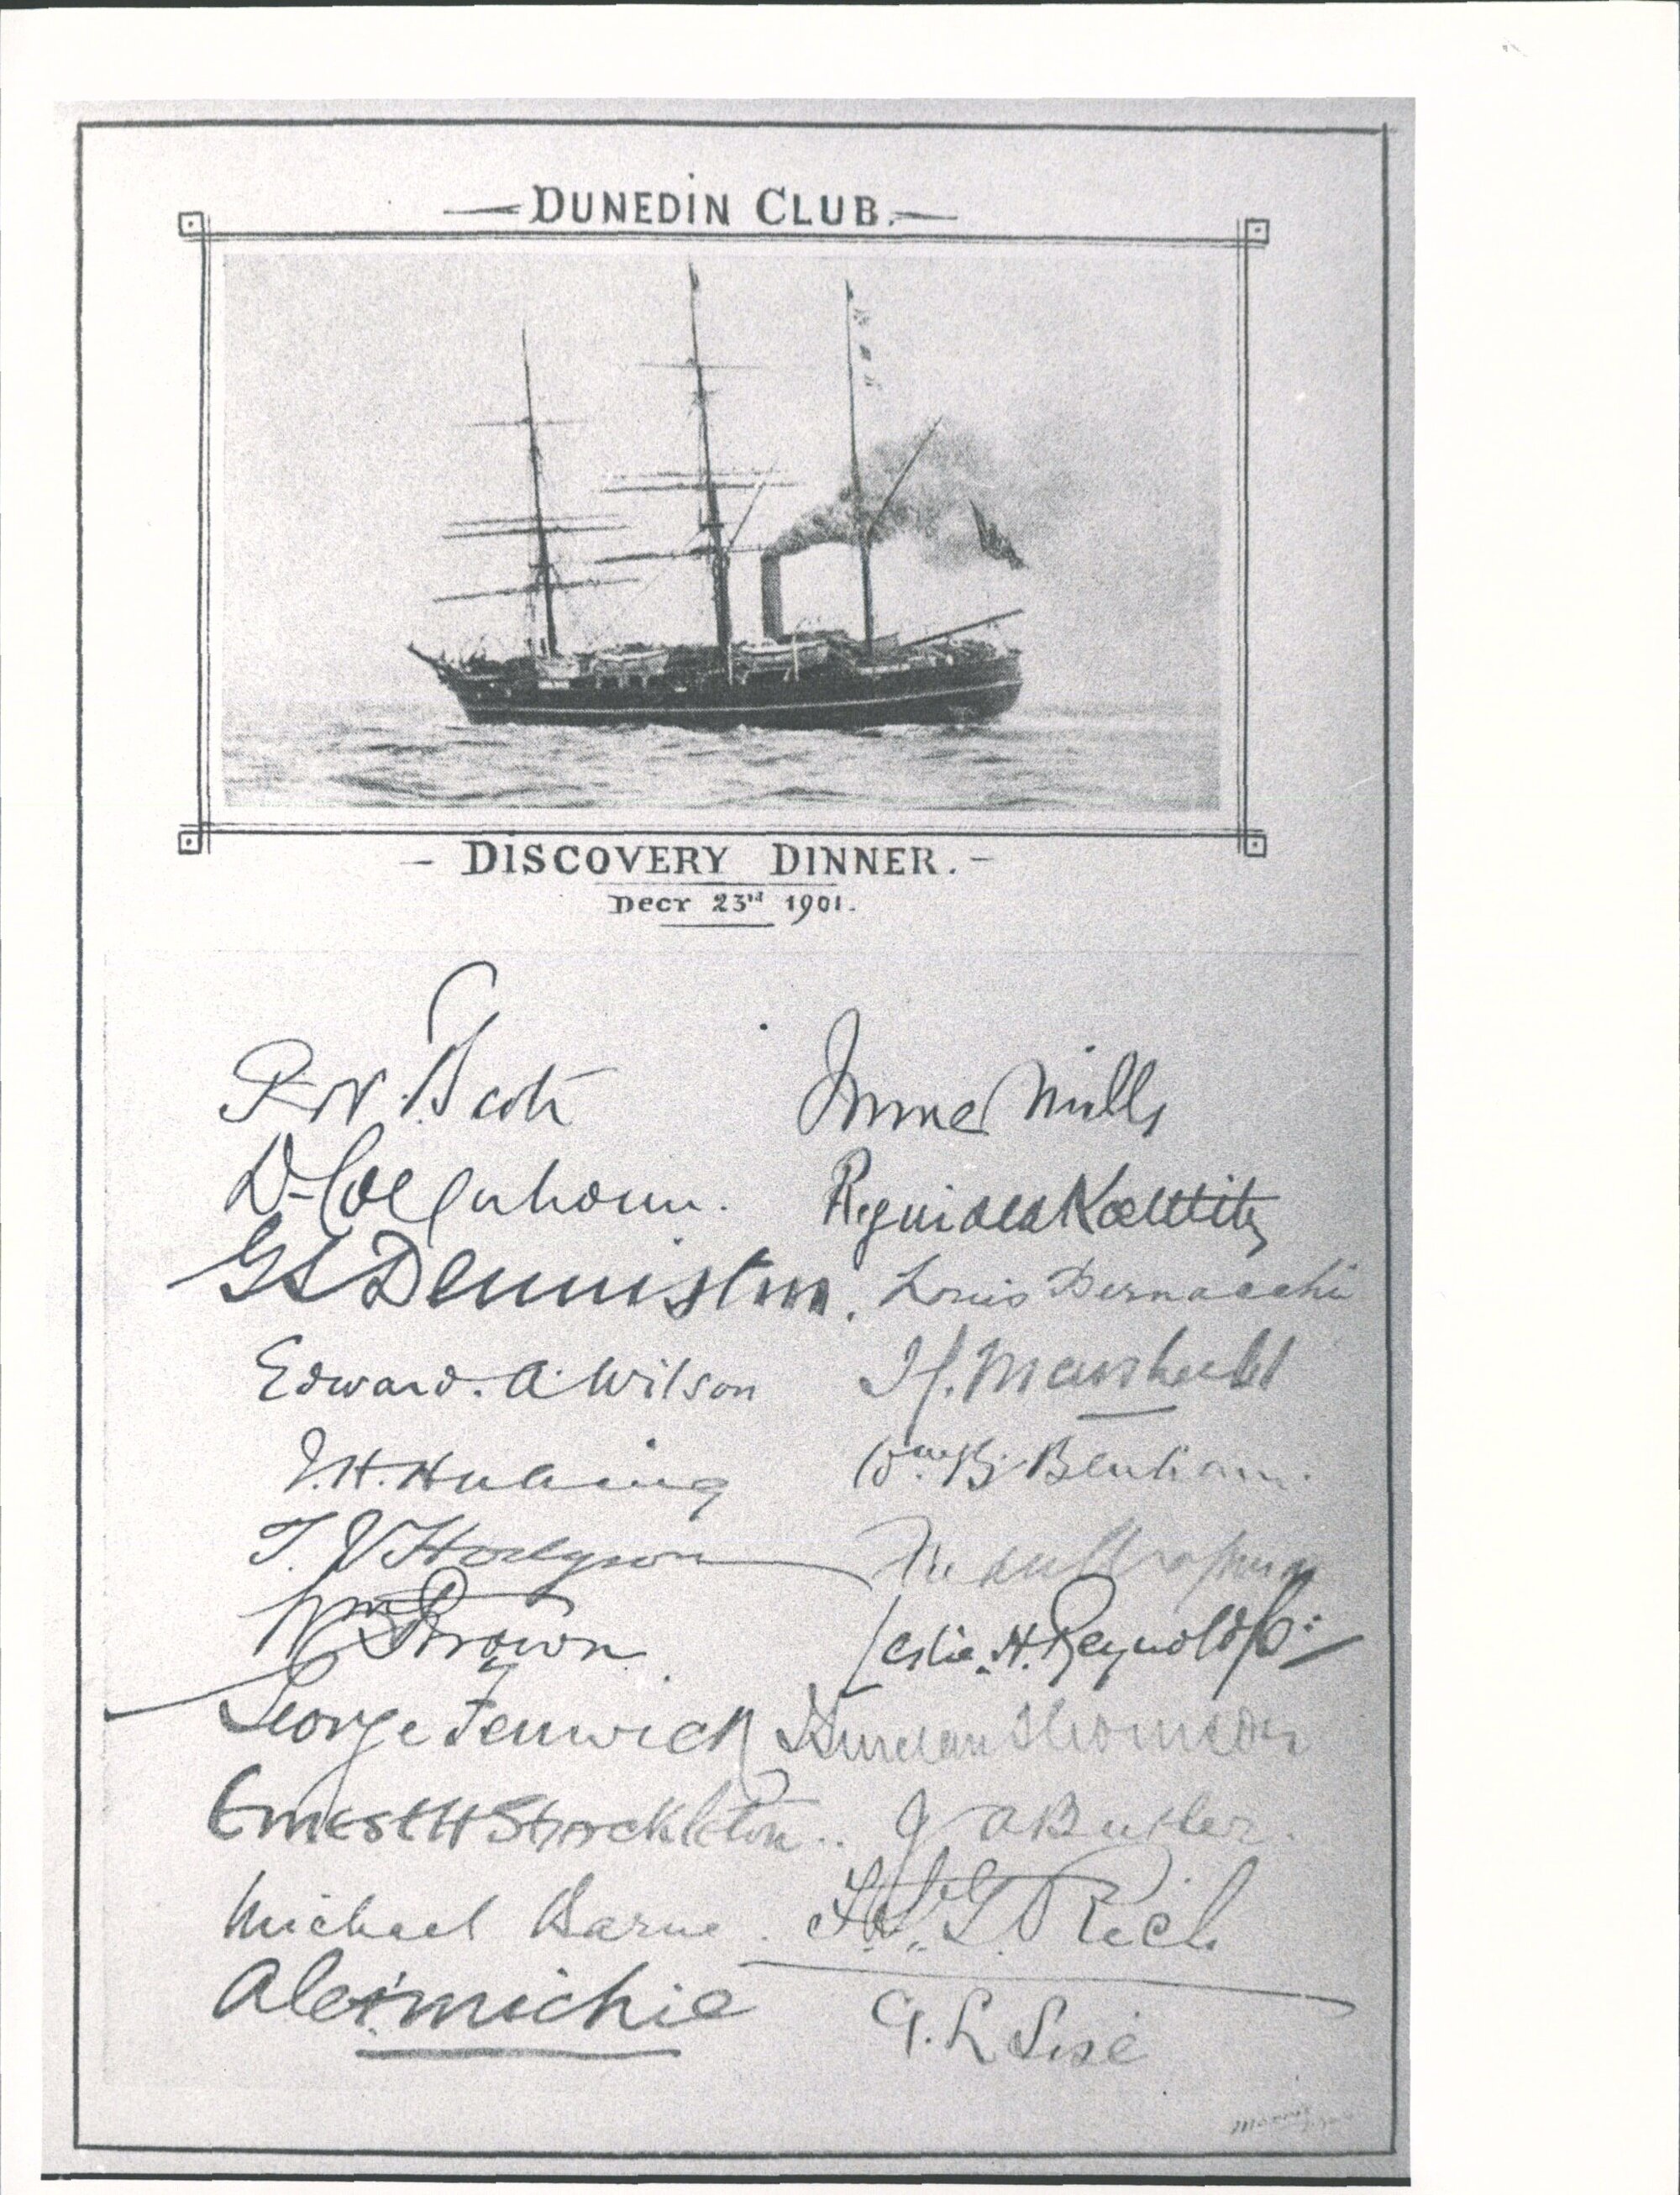 DUNEDIN CLUB.
DISCOVERY DINNER.
Decr 23rd 1901.
R N. Scott
James Mills
D. Colquhoun.
Reginald Koettlitz
G L Denniston.
Louis Bernacchi
Edward. A. Wilson
H. Marshall
Wm. B. Benham.
T. V Hodgson
Wm Brown
Leslie. H. Reynolds
George Fenwick
Thomson
Ernest H Shackleton..
J A Butler.
Michael Barne.
Rich
Alex. Michie
G. L Sise